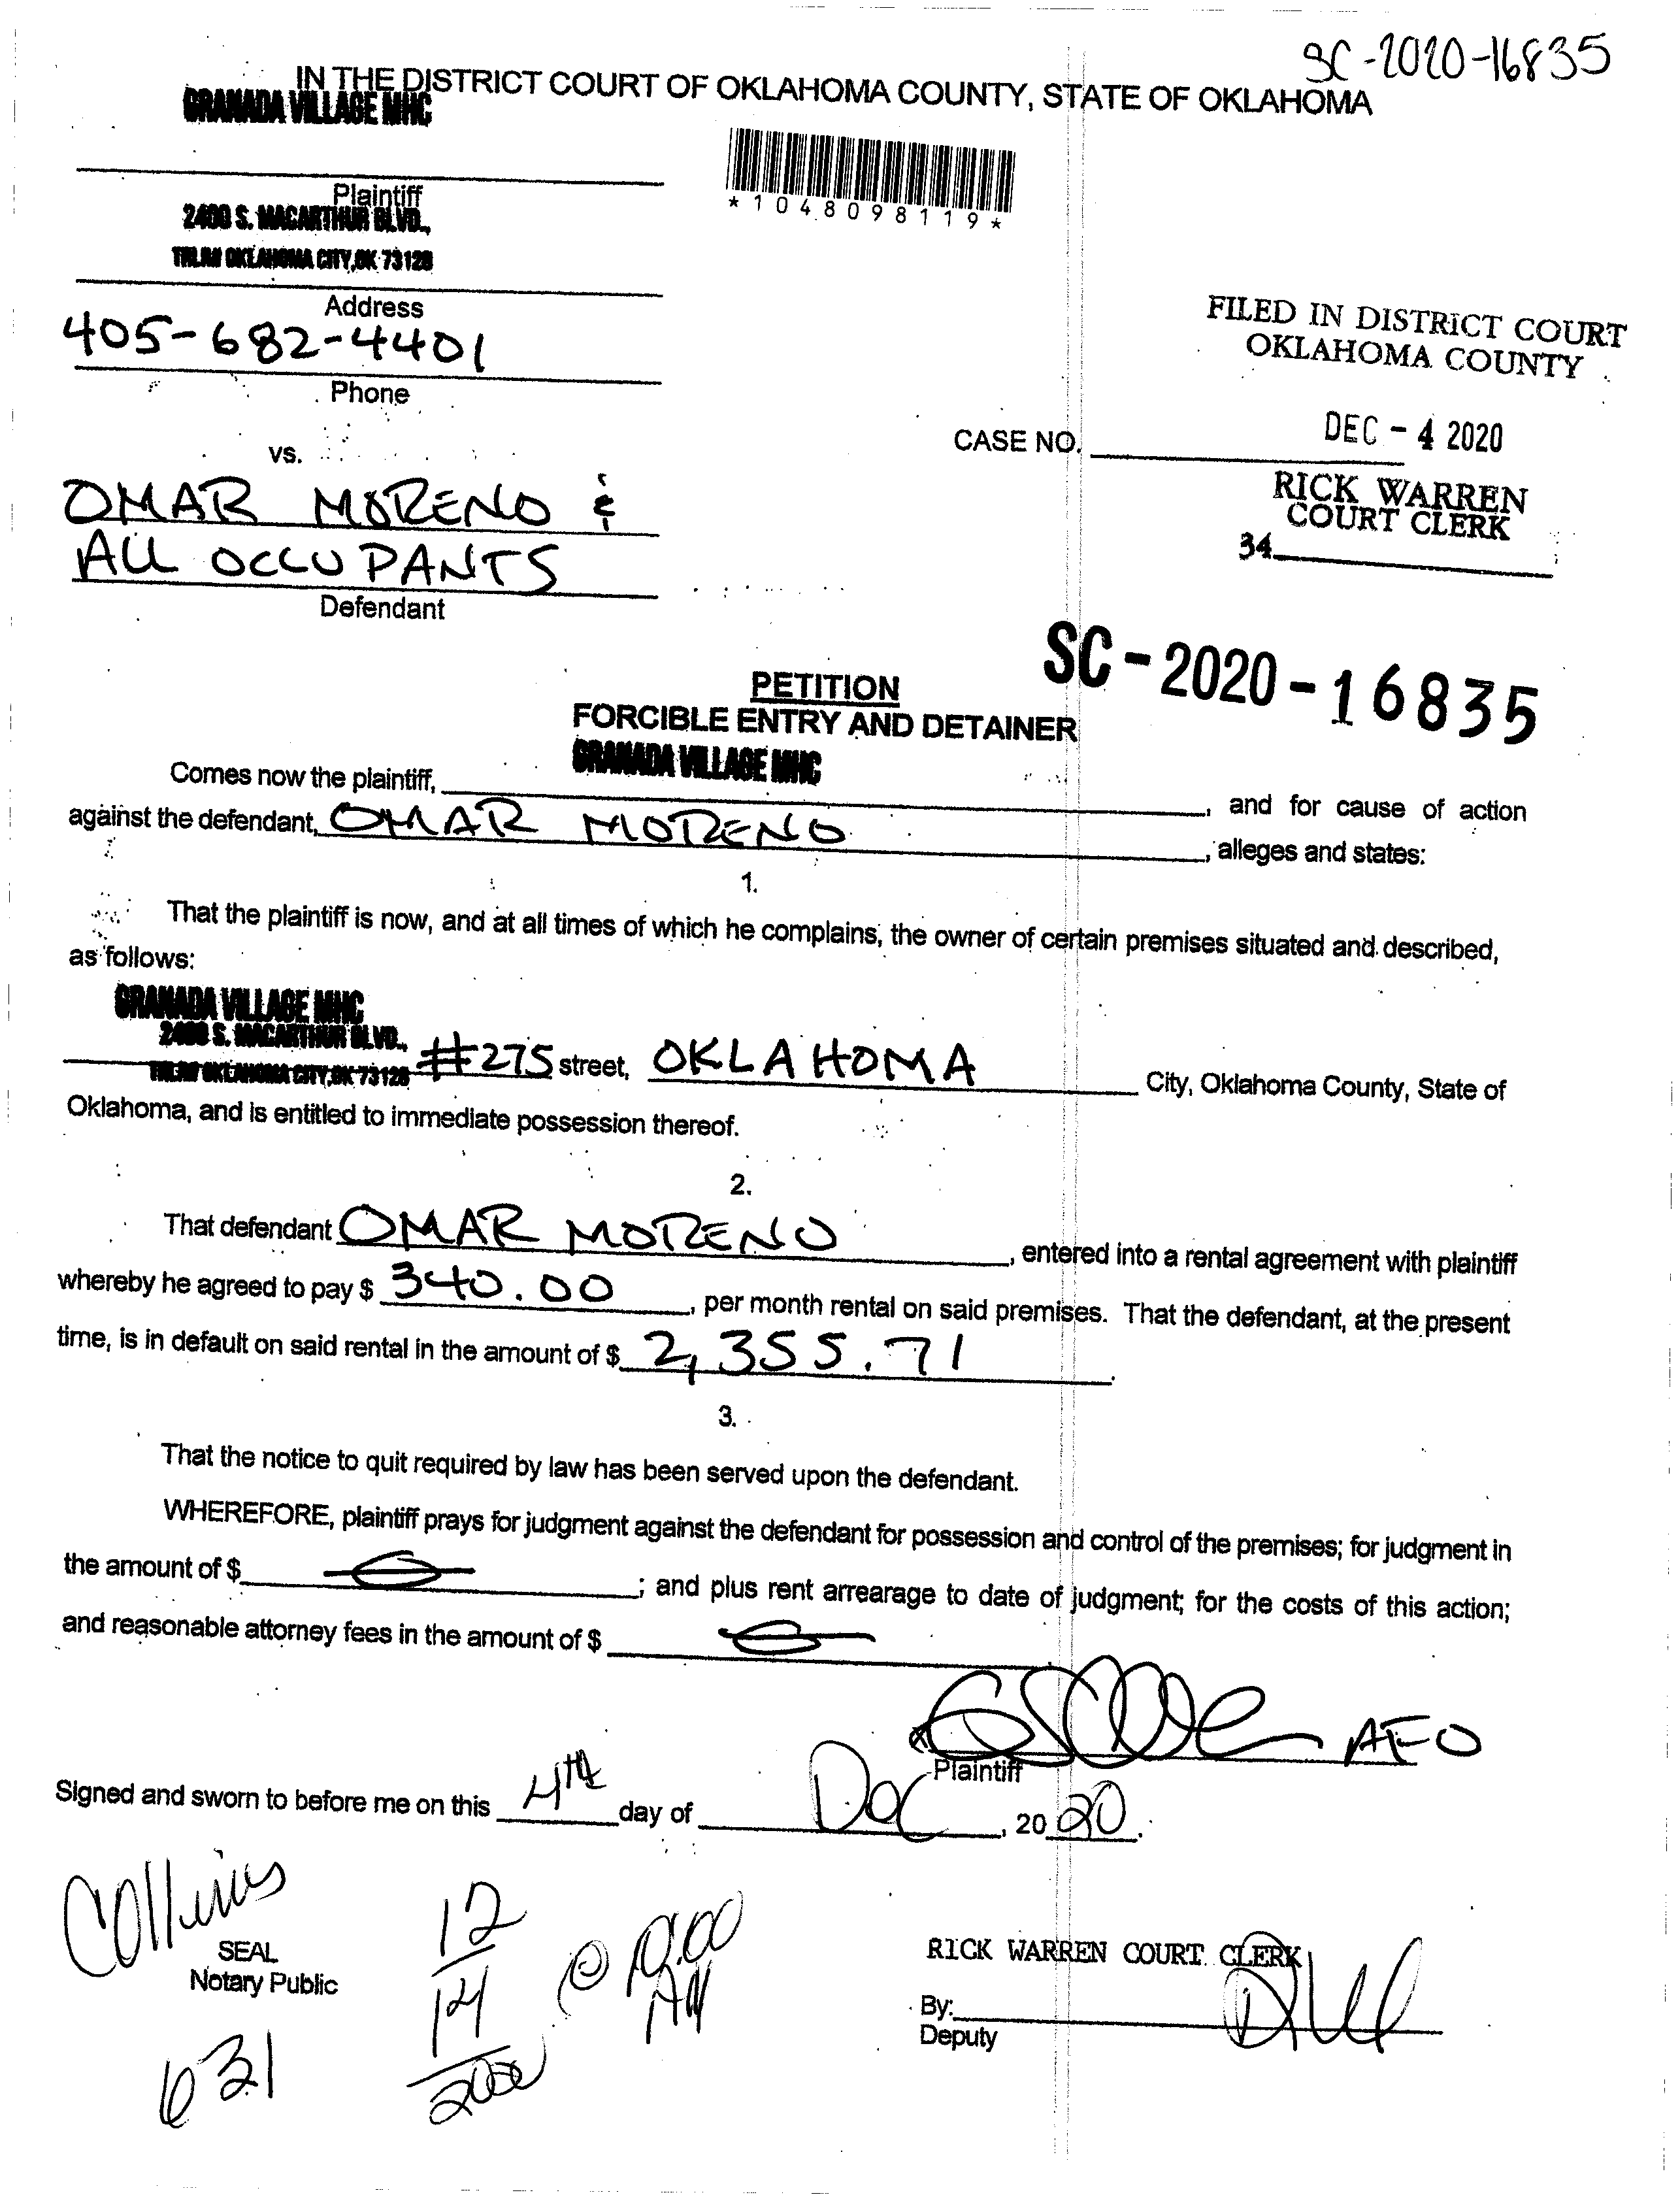 SC-2020-16835
IN THE DISTRICT COURT OF OKLAHOMA COUNTY, STATE OF OKLAHOMA
GRANADA VILLAGE MHC
Plaintiff
*1048098119*
2400 S. MACARTHUR BLVD.,
OKLAHOMA CITY, OK 73128
Address
405-682-4401
Phone
FILED IN DISTRICT COURT
OKLAHOMA COUNTY
vs.
CASE NO.
DEC - 4 2020
OMAR MORENO &
RICK WARREN
COURT CLERK
ALL OCCUPANTS
34
Defendant
SC-2020-16835
PETITION
FORCIBLE ENTRY AND DETAINER
GRANADA VILLAGE MHC
Comes now the plaintiff, , and for cause of action
against the defendant, OMAR MORENO , alleges and states:
1.
That the plaintiff is now, and at all times of which he complains, the owner of certain premises situated and described,
as follows:
GRANADA VILLAGE MHC
2400 S. MACARTHUR BLVD.,
OKLAHOMA CITY, OK 73128 #275 street, OKLAHOMA City, Oklahoma County, State of
Oklahoma, and is entitled to immediate possession thereof.
2.
That defendant OMAR MORENO , entered into a rental agreement with plaintiff
whereby he agreed to pay $ 340.00 , per month rental on said premises. That the defendant, at the present
time, is in default on said rental in the amount of $ 2,355.71 .
3.
That the notice to quit required by law has been served upon the defendant.
WHEREFORE, plaintiff prays for judgment against the defendant for possession and control of the premises; for judgment in
the amount of $ ; and plus rent arrearage to date of judgment; for the costs of this action;
and reasonable attorney fees in the amount of $
X AFO
Plaintiff
Signed and sworn to before me on this 4TH day of Dec , 2020.
Collins
SEAL
Notary Public
631
12
14
2020
@ 10:00
AM
RICK WARREN COURT CLERK
By:
Deputy